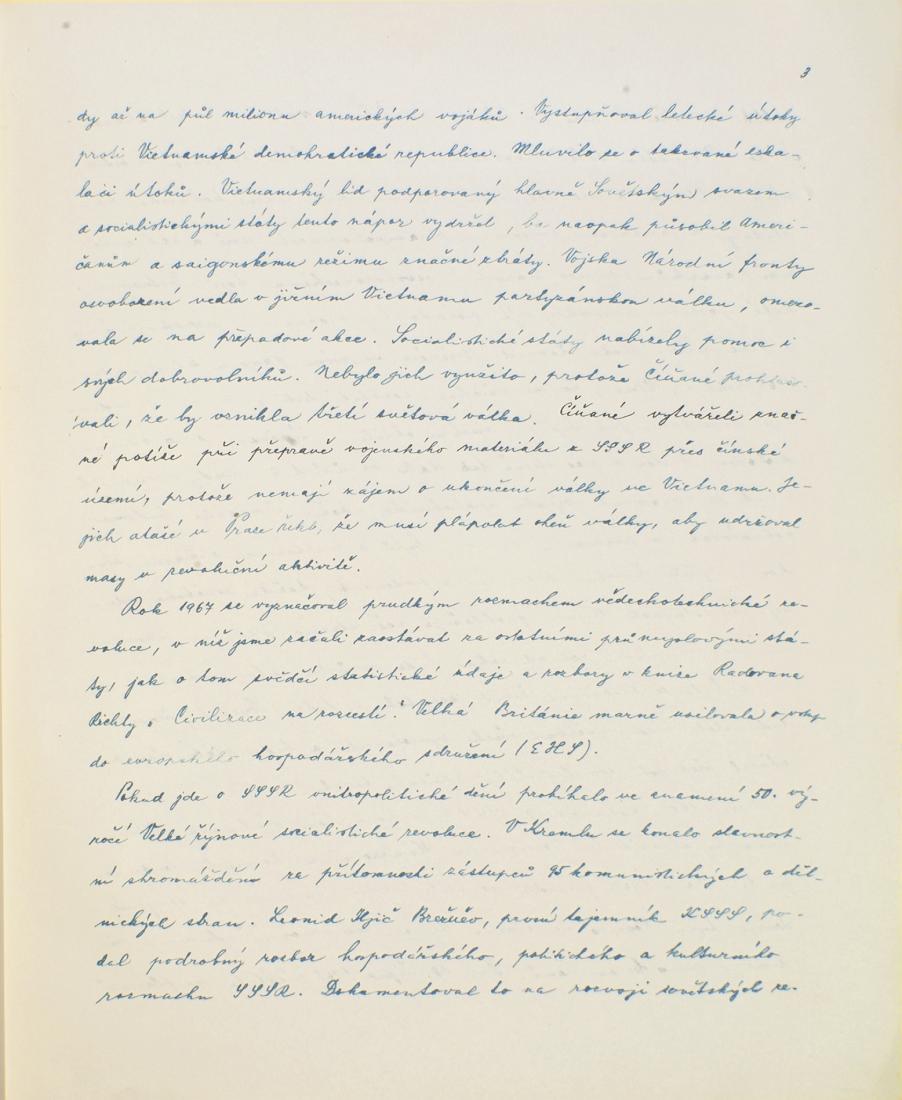 3
dy až na půl milionu amerických vojáků. Vystupňoval letecké útoky
proti Vietnamské demokratické republice. Mluvilo se o takované eska-
laci útoků. Vietnamský lid podporovaný hlavně Sovětským svazem
a socialistickými státy tento nápor vydržel, ba naopak působil Ameri-
čanům a saigonskému režimu značné ztráty. Vojska Národní fronty
osvobození vedla v jižním Vietnamu partyzánskou válku, omezo-
vala se na přepadové akce. Socialistické státy nabízely pomoc i
svých dobrovolníků. Nebylo jich využito, protože Číňané
vali, že by vznikla třetí světová válka. Číňané vytvářeli znač-
né potíže při přepravě vojenského materiálu z SSSR přes čínské
území, protože nemají zájem o ukončení války ve Vietnamu. Je-
jich atašé v Praze řekl, že musí plápolat oheň války, aby udržoval
masy v revoluční aktivitě.
Rok 1967 se vyznačoval prudkým rozmachem vědeckotechnické re-
voluce, v níž jsme začali zaostávat za ostatními průmyslovými stá-
ty, jak o tom svědčí statistické údaje a rozbory v knize Radovana
Richty „Civilizace na rozcestí." Velká Británie marně usilovala o vstup
do evropského hospodářského sdružení (EHS).
Pokud jde o SSSR vnitropolitické dění probíhalo ve znamení 50. vý-
ročí Velké říjnové socialistické revoluce. V Kremlu se konalo slavnost-
ní shromáždění za přítomnosti zástupců 95 komunistických a děl-
nických stran. Leonid Iljič Brežněv, první tajemník KSSS, po-
dal podrobný rozbor hospodářského, politického a kulturního
rozmachu SSSR. Dokumentoval to na rozvoji sovětských re-